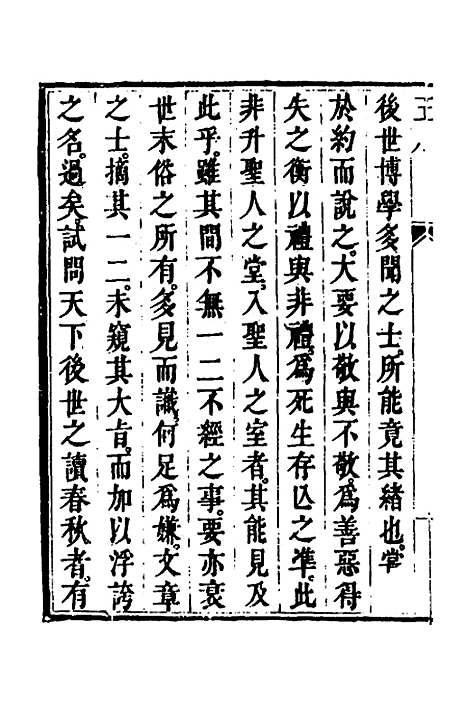 後世博學多聞之士。所能竟其緒也。當
於約而說之。大要以敬與不敬。爲善惡得
失之衡。以禮與非禮。爲死生存亾之準。此
非升聖人之堂。入聖人之室者。其能見及
此乎。雖其間不無一二不經之事。要亦衰
世末俗之所有。多見而識。何足爲嫌。文章
之士。摘其一二。未窺其大旨。而加以浮誇
之名。過矣。試問天下後世之讀春秋者。有